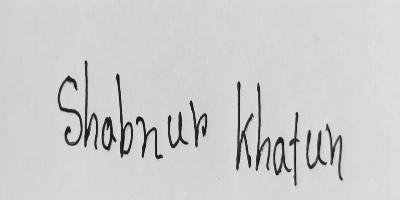 Shabnur Khatun